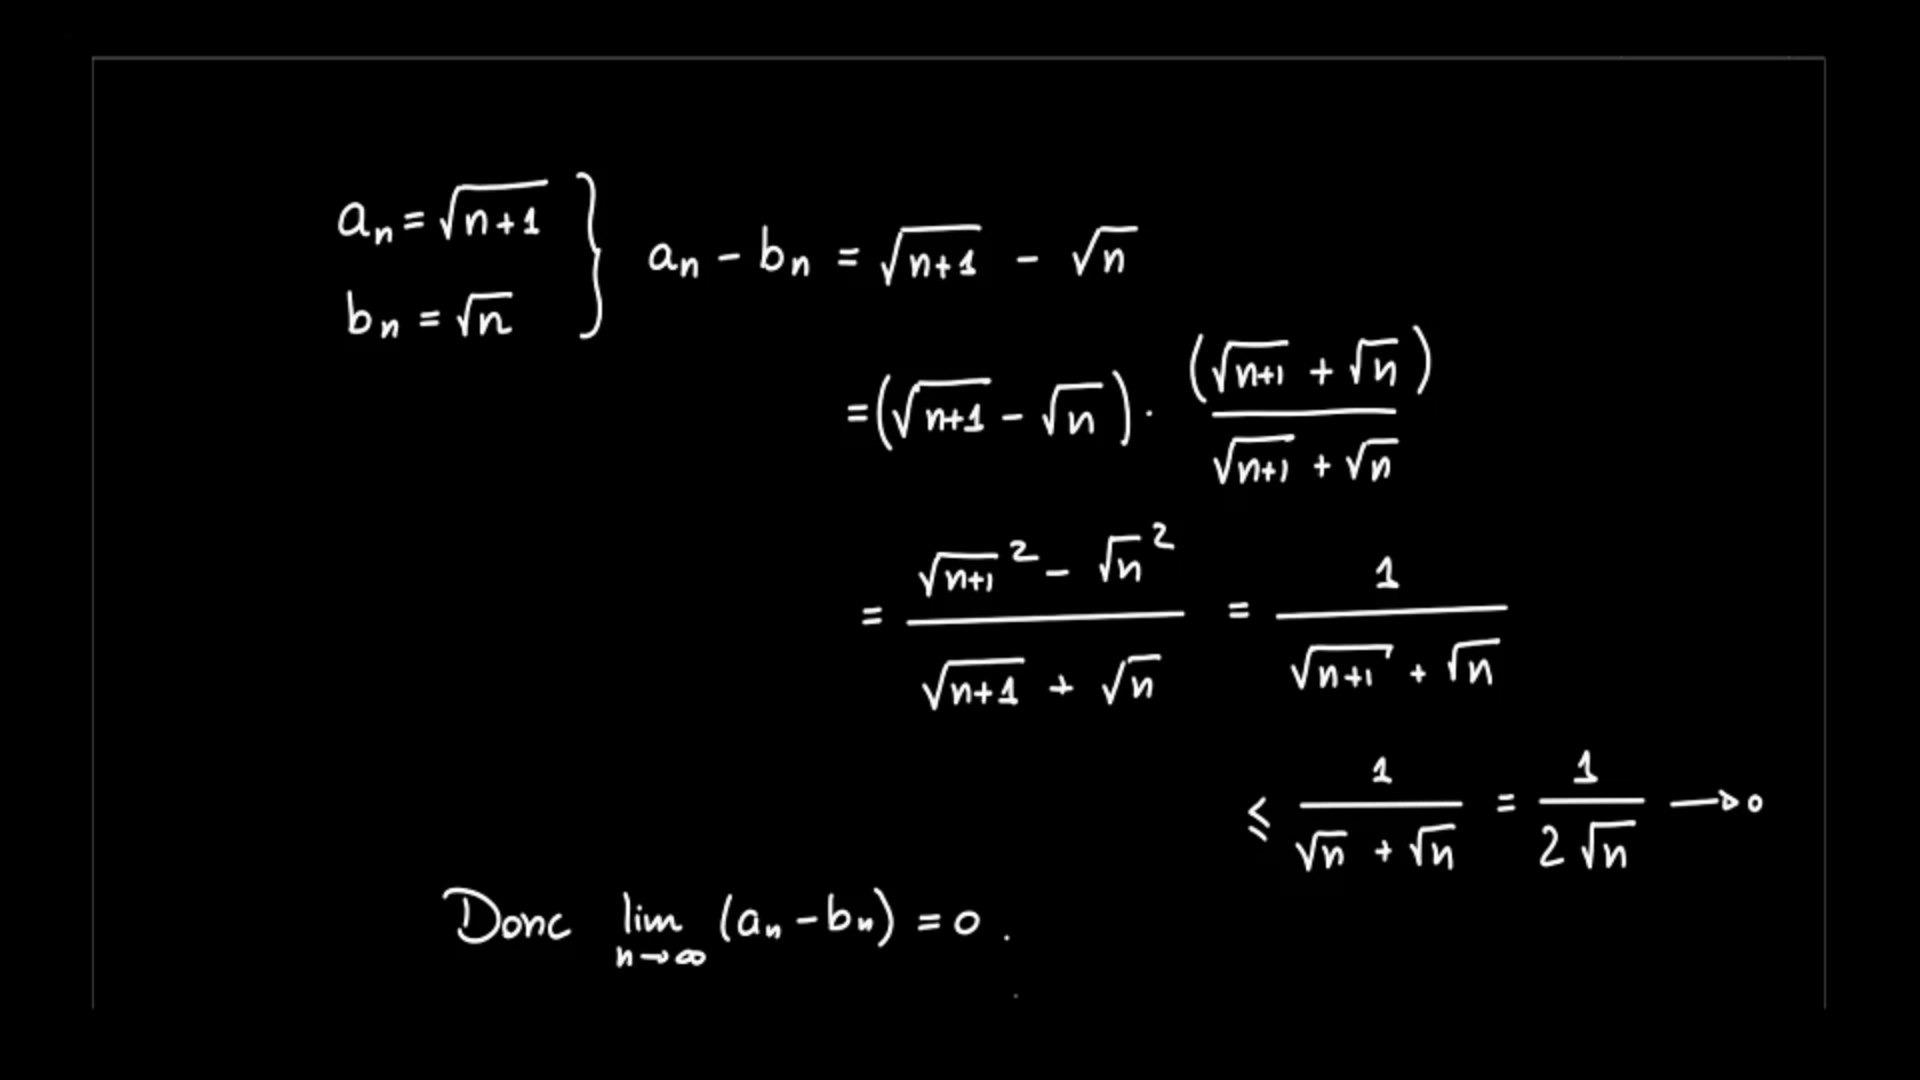 aₙ = √(n+1)
bₙ = √n
} aₙ − bₙ = √(n+1) − √n
= (√(n+1) − √n) · (√(n+1) + √n) / (√(n+1) + √n)
= (√(n+1)² − √n²) / (√(n+1) + √n) = 1 / (√(n+1) + √n)
≤ 1 / (√n + √n) = 1 / (2√n) → 0
Donc lim n→∞ (aₙ − bₙ) = 0.